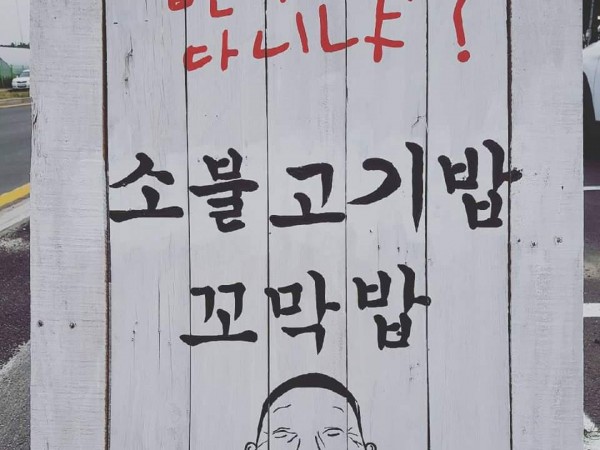 다니냐?
소불고기밥
꼬막밥